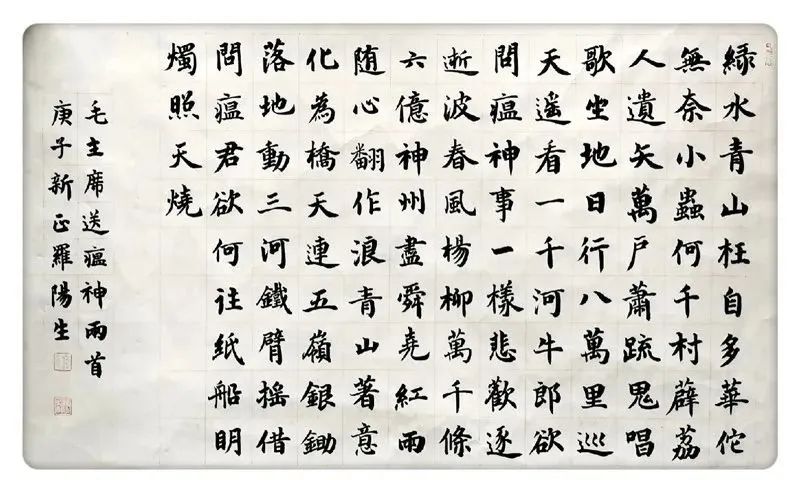 綠水青山枉自多華佗
無奈小蟲何千村薜荔
人遺矢萬戶蕭疏鬼唱
歌坐地日行八萬里巡
天遙看一千河牛郎欲
問瘟神事一樣悲歡逐
逝波春風楊柳萬千條
六億神州盡舜堯紅雨
随心翻作浪青山著意
化為橋天連五嶺銀鋤
落地動三河鐵臂搖借
問瘟君欲何往紙船明
燭照天燒
毛主席送瘟神兩首
庚子新正羅陽生